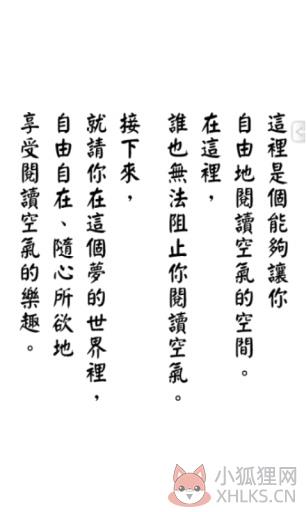 這裡是個能夠讓你
自由地閱讀空氣的空間。
在這裡，
誰也無法阻止你閱讀空氣。
接下來，
就請你在這個夢的世界裡，
自由自在、隨心所欲地
享受閱讀空氣的樂趣。
小狐狸网
XHLKS.CN